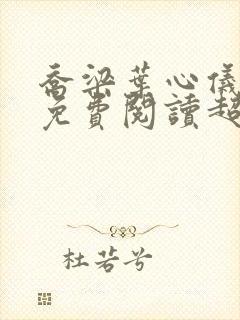 喬梁葉心儀
免費閱讀超
杜若兮